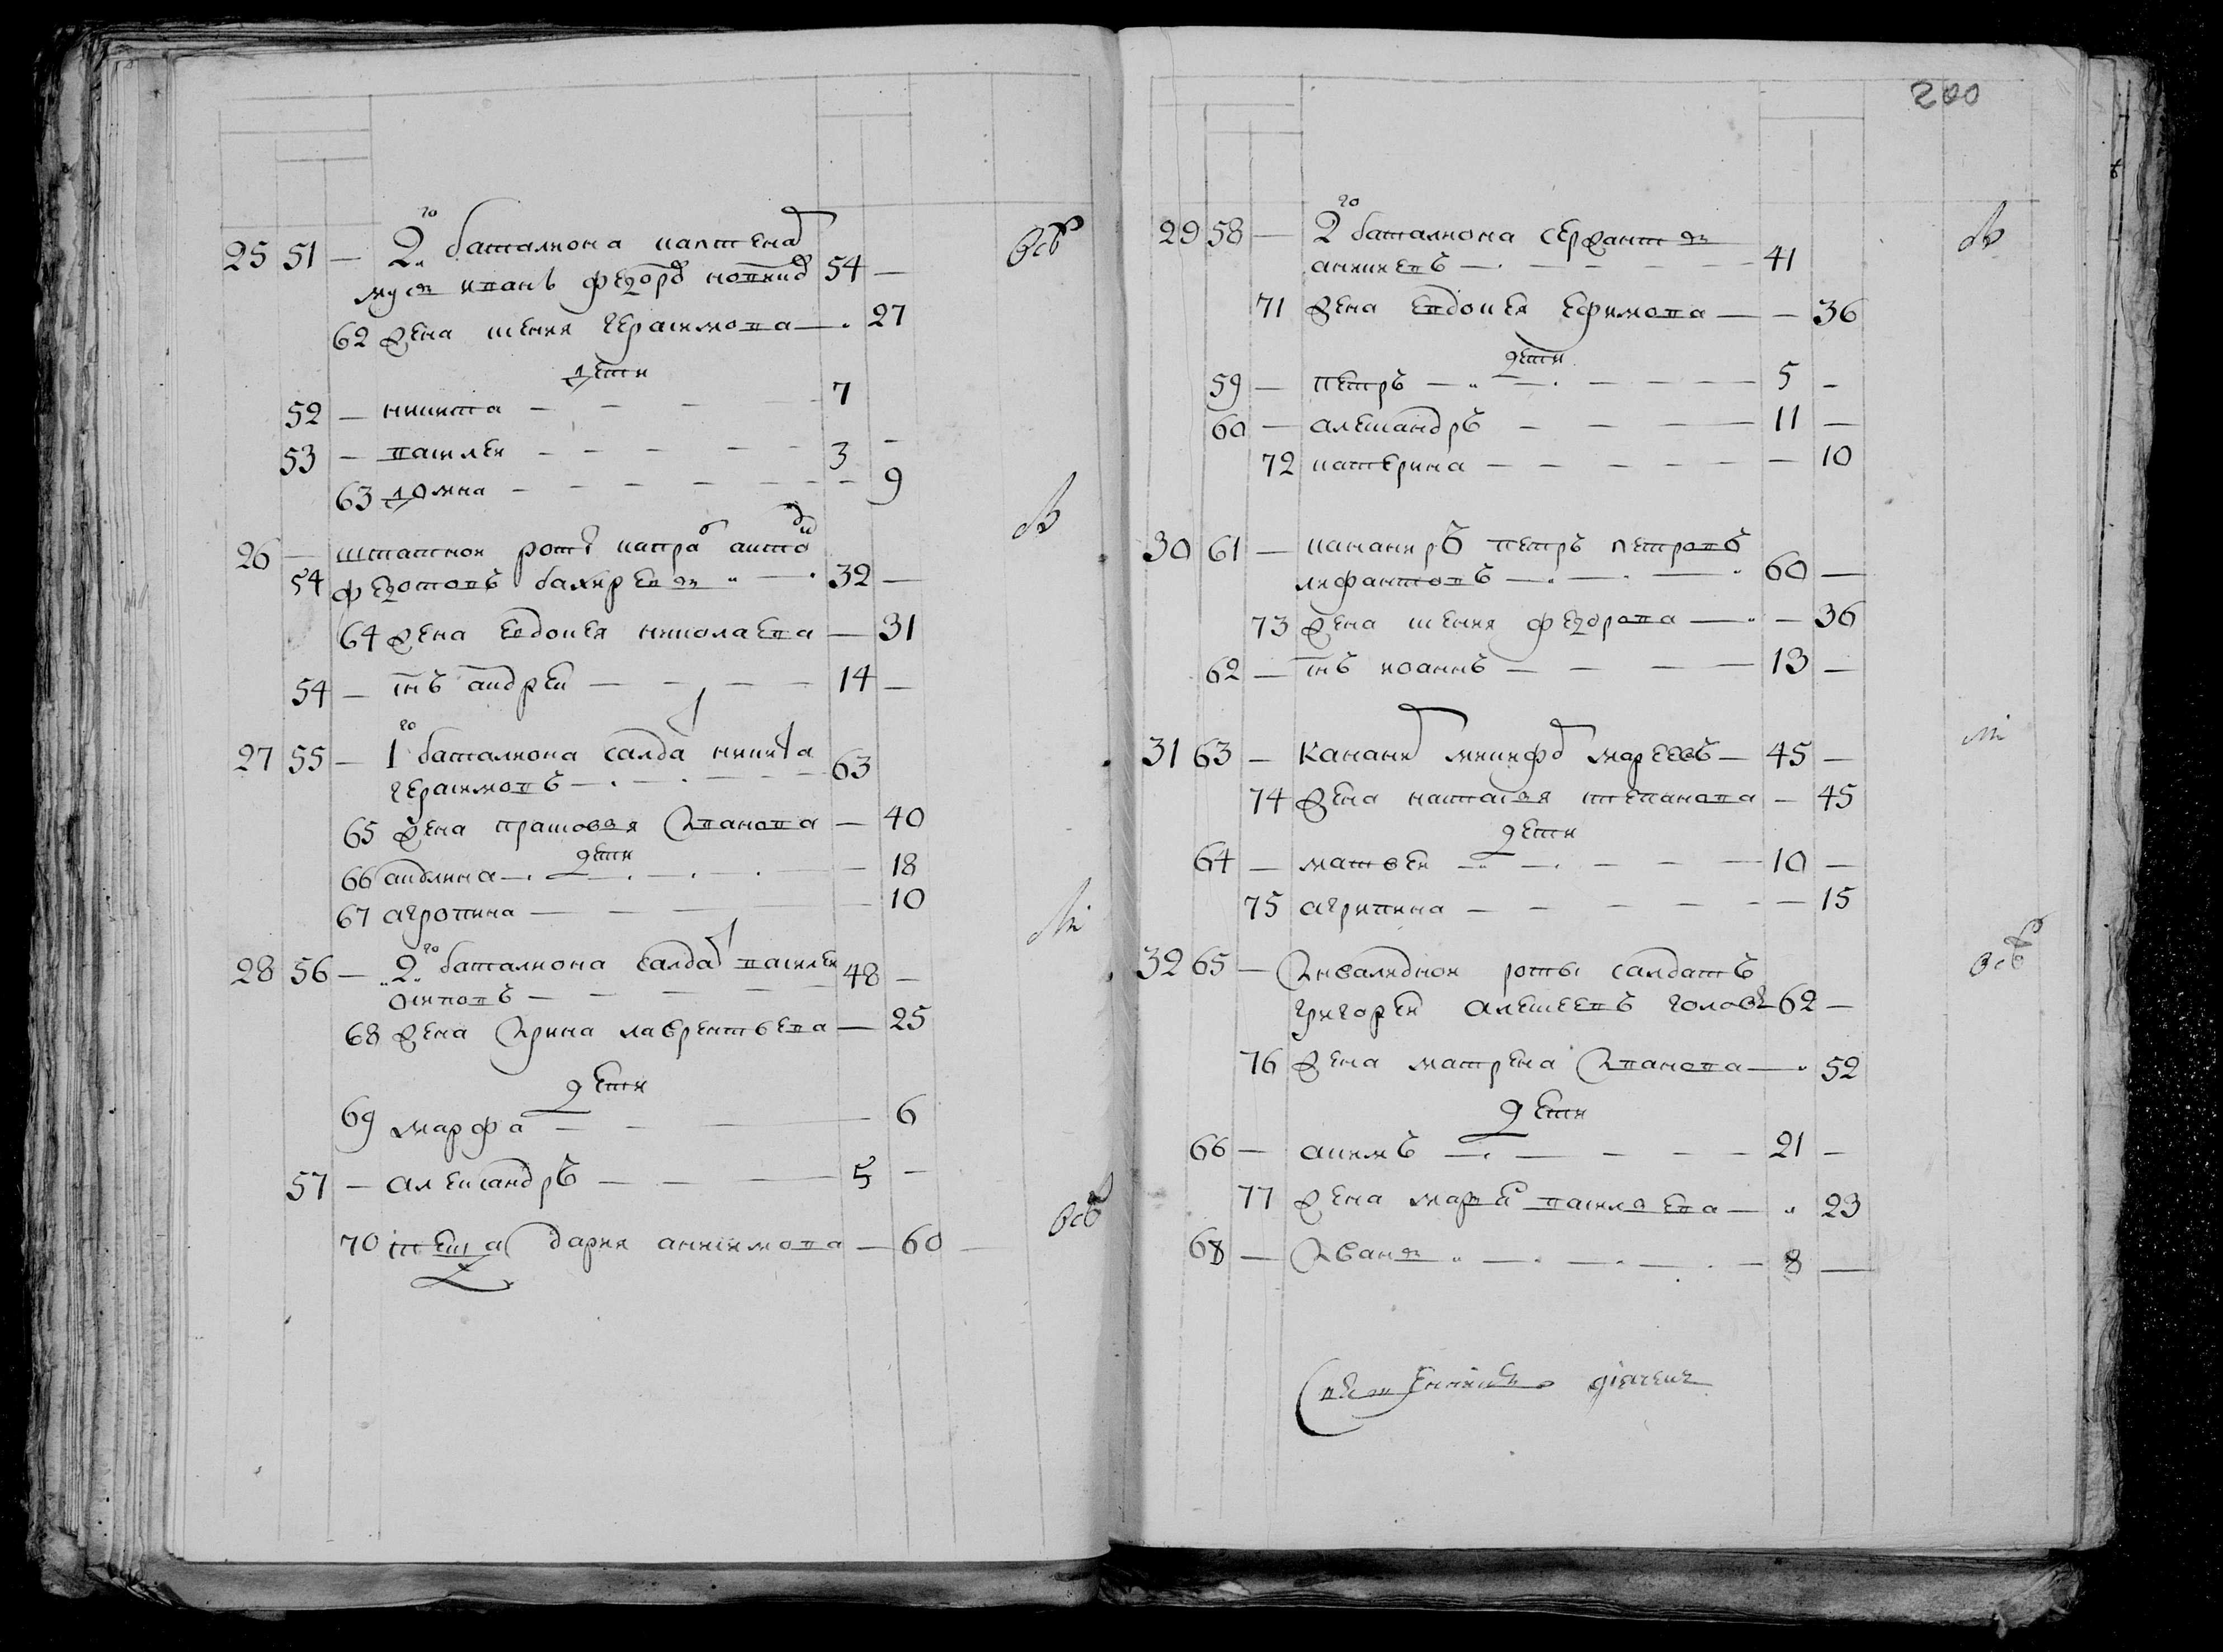 25 51 — 2го баталиона каптена
мус иванъ федоръ 54 —
62 жена ксения герасимова — 27
дети
52 — никита — 7
53 — василеи — 3 —
63 домна — 9
26 — штатнои роты капра
54 федотовъ — 32 —
64 жена евдокея николаева — 31
54 — снъ андреи — 14 —
27 55 — 1го баталиона салда никита
герасимовъ — 63
65 жена прасковя иванова — 40
дети
66 акулина — 18
67 агропина — 10
28 56 — 2го баталиона салда василеи 48 —
осиповъ —
68 жена ирина лаврентьева — 25
дети
69 марфа — 6
57 — александръ — 5 —
70 теща дария анисимова — 60 —
200
29 58 — 2го баталиона сержантъ
аникиевъ — 41
71 жена евдокея ефимова — 36
дети
59 — петръ — 5 —
60 — александръ — 11 —
72 катерина — 10
30 61 — кананиръ петръ петровъ
— 60 —
73 жена ксения федорова — 36
62 — снъ иоаннъ — 13 —
31 63 — канани никифо — 45 —
74 жена наталья степанова — 45
дети
64 — матвеи — 10 —
75 агрипина — 15
32 65 — инвалиднои роты салдатъ
григореи алексеевъ голов 62 —
76 жена матрена иванова — 52
дети
66 — акимъ — 21 —
77 жена марья василева — 23
68 — иванъ — 8 —
священникъ